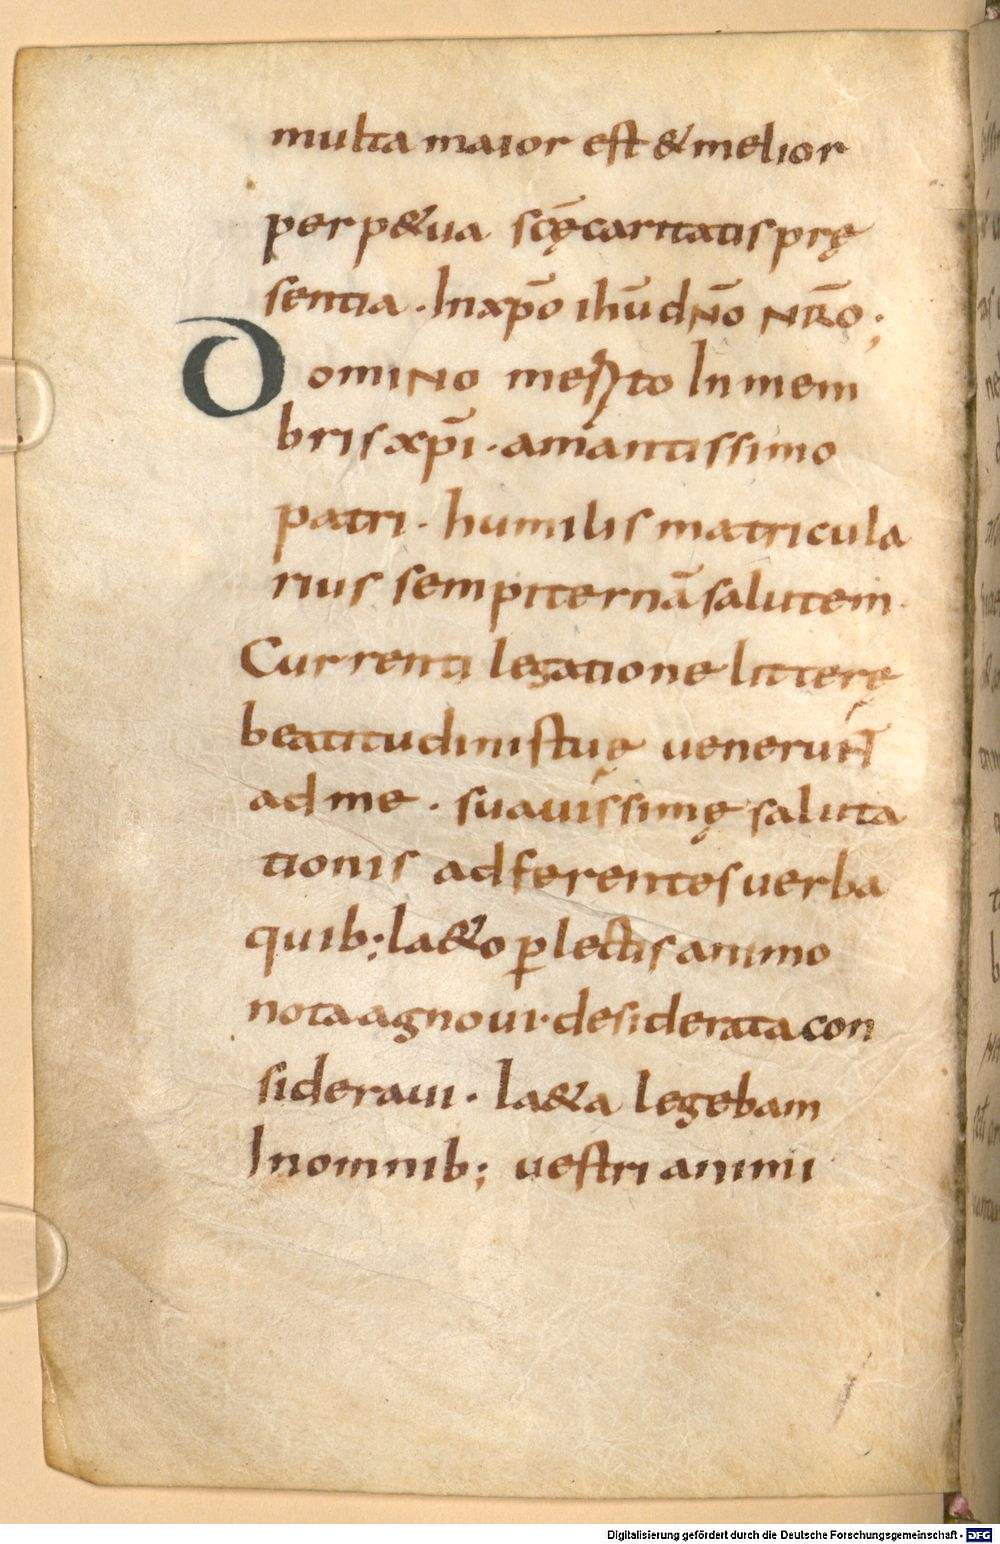 multa maior est & melior
perp&ua scę̄ caritatis prę
sentia . In xp̄o ihū dño nr̄o ;
Domino meri̅to In mem
bris xp̄i . amantissimo
patri . humilis matricula
rius sempiternā salutem .
Currenti legatione litterę
beatitudinis tuę uenerunt
ad me . suauissimę saluta
tionis ad ferentes uerba
quib; la&o ꝑlectis animo
nota agnoui . desiderata con
sideraui . la&a legebam
In omnib; uestri animi
Digitalisierung gefördert durch die Deutsche Forschungsgemeinschaft - DFG